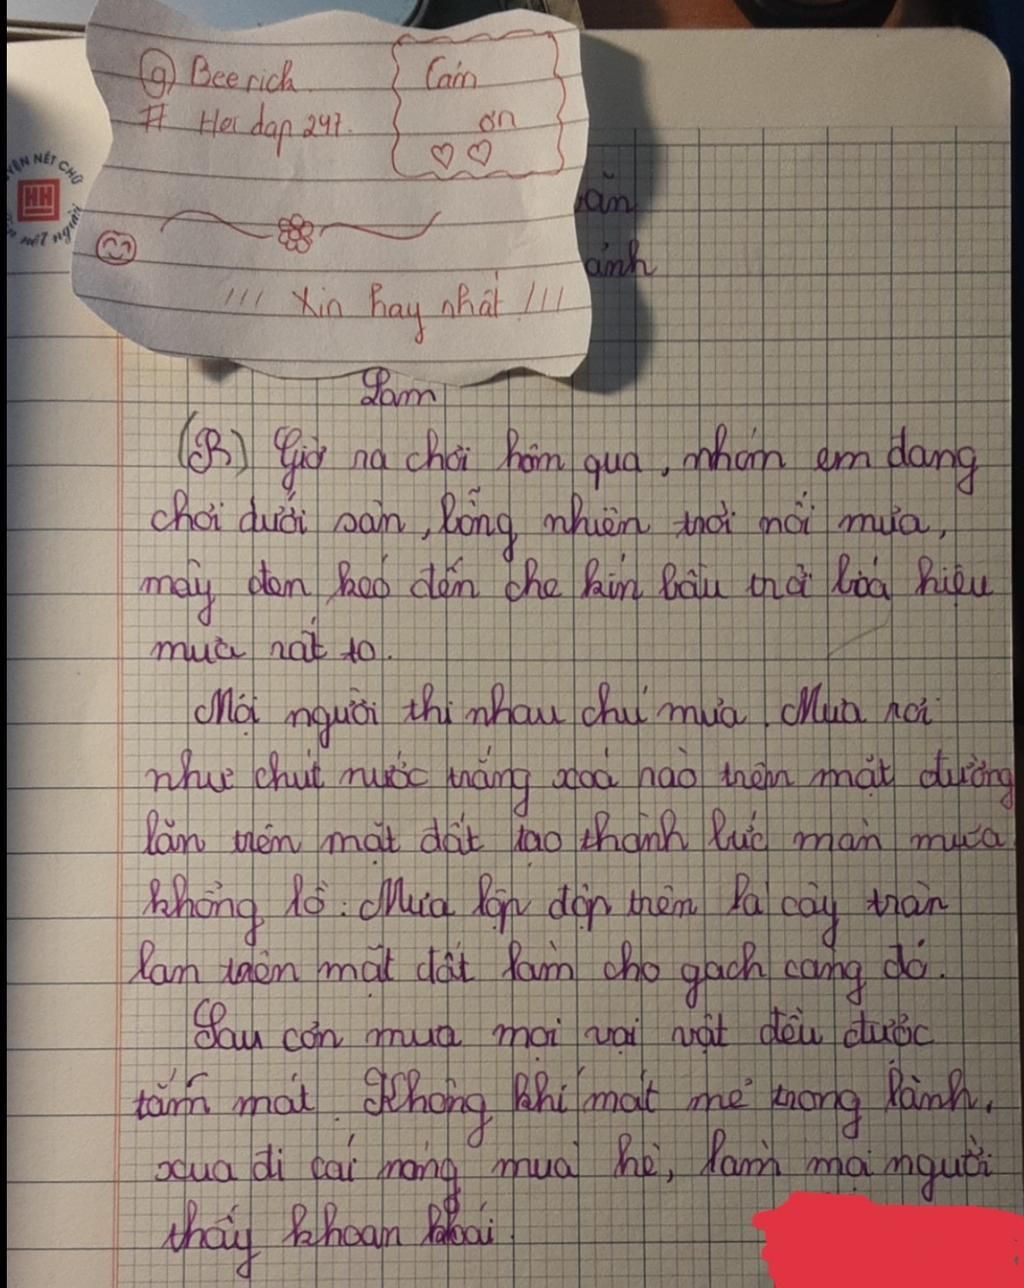 g Beerich
# Hoi dap 247.
Cám
ơn
!!! Xin hay nhất !!!
YỆN NÉT CHỮ
HH
NÉT NGƯỜI
văn
ảnh
Làm
(B) Giờ ra chơi hôm qua, nhóm em đang
chơi dưới sân, bỗng nhiên trời nổi mưa,
mây đen kéo đến che kín bầu trời báo hiệu
mưa rất to.
Mọi người thi nhau chú mưa. Mưa rơi
như chút nước trắng xoá nào trên mặt đường
lăn trên mặt đất tạo thành bức màn mưa
khổng lồ. Mưa lộp độp trên lá cây tràn
lan trên mặt đất làm cho gạch càng đỏ.
Sau cơn mưa mọi vại vật đều được
tắm mát. Không khí mát mẻ trong lành,
xua đi cái nóng mùa hè, làm mọi người
thấy khoan khoái.